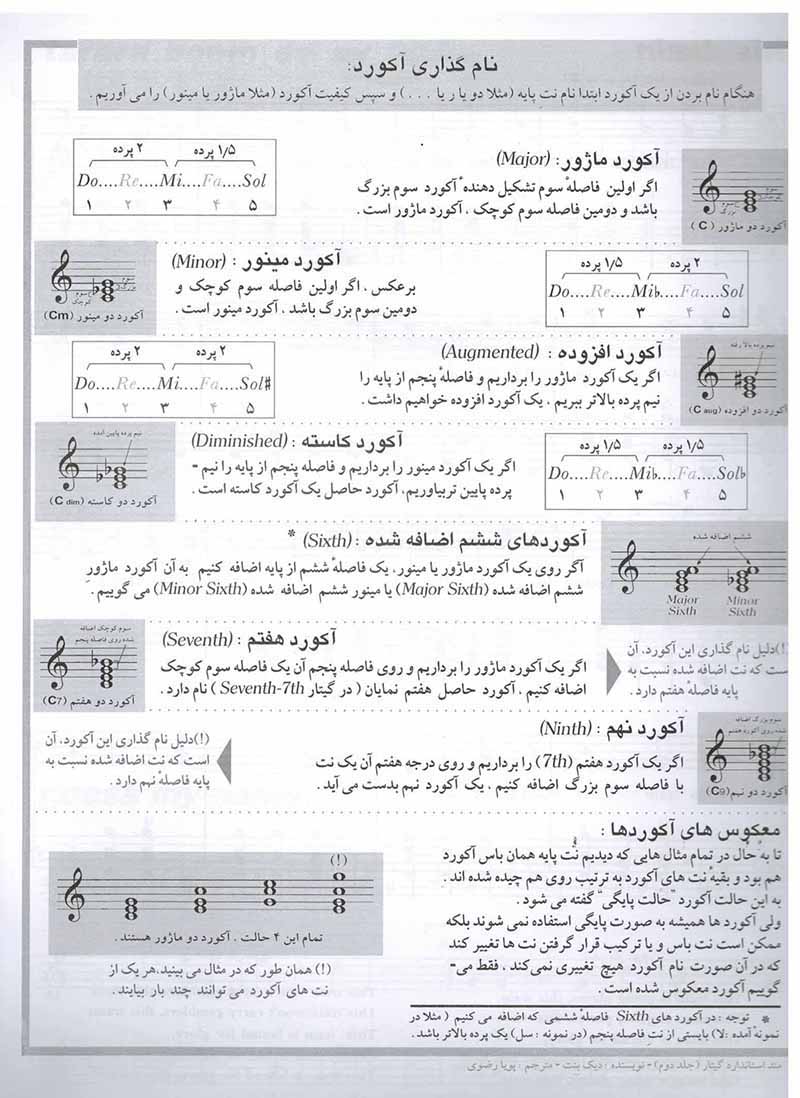 نام گذاری آکورد:
هنگام نام بردن از یک آکورد ابتدا نام نت پایه (مثلا دو یا ر یا . . . ) و سپس کیفیت آکورد (مثلا ماژور یا مینور) را می آوریم .
آکورد ماژور: (Major)
اگر اولین فاصلهٔ سوم تشکیل دهندهٔ آکورد سوم بزرگ
باشد و دومین فاصله سوم کوچک ، آکورد ماژور است .
۲ پرده ۱/۵ پرده
Do....Re....Mi....Fa....Sol
۱ ۲ ۳ ۴ ۵
سوم کوچک
سوم بزرگ
آکورد دو ماژور (C)
آکورد مینور : (Minor)
برعکس ، اگر اولین فاصله سوم کوچک و
دومین سوم بزرگ باشد ، آکورد مینور است .
۱/۵ پرده ۲ پرده
Do....Re....Mi♭....Fa....Sol
۱ ۲ ۳ ۴ ۵
سوم بزرگ
سوم کوچک
آکورد دو مینور (Cm)
آکورد افزوده : (Augmented)
اگر یک آکورد ماژور را برداریم و فاصلهٔ پنجم از پایه را
نیم پرده بالاتر ببریم ، یک آکورد افزوده خواهیم داشت .
۲ پرده ۲ پرده
Do....Re....Mi....Fa....Sol♯
۱ ۲ ۳ ۴ ۵
نیم پرده بالا رفته
آکورد دو افزوده (C aug)
آکورد کاسته : (Diminished)
اگر یک آکورد مینور را برداریم و فاصله پنجم از پایه را نیم -
پرده پایین تربیاوریم، آکورد حاصل یک آکورد کاسته است .
۱/۵ پرده ۱/۵ پرده
Do....Re....Mi♭....Fa....Sol♭
۱ ۲ ۳ ۴ ۵
نیم پرده پایین آمده
آکورد دو کاسته (C dim)
آکوردهای ششم اضافه شده : (Sixth) *
آگر روی یک آکورد ماژور یا مینور، یک فاصلهٔ ششم از پایه اضافه کنیم به آن آکورد ماژورِ
ششم اضافه شده (Major Sixth) یا مینور ششم اضافه شده (Minor Sixth) می گوییم .
ششم اضافه شده
Major Sixth
Minor Sixth
آکورد هفتم : (Seventh)
اگر یک آکورد ماژور را برداریم و روی فاصله پنجم آن یک فاصله سوم کوچک
اضافه کنیم ، آکورد حاصل هفتم نمایان ( در گیتار Seventh-7th ) نام دارد .
!)دلیل نام گذاری این آکورد، آن
ست که نت اضافه شده نسبت به
پایه فاصلهٔ هفتم دارد .
سوم کوچک اضافه
شده روی فاصله پنجم
آکورد دو هفتم (C7)
آکورد نهم : (Ninth)
اگر یک آکورد هفتم (7th) را برداریم و روی درجه هفتم آن یک نت
با فاصله سوم بزرگ اضافه کنیم ، یک آکورد نهم بدست می آید .
(!)دلیل نام گذاری این آکورد، آن
است که نت اضافه شده نسبت به
پایه فاصلهٔ نهم دارد .
سوم بزرگ اضافه
شده روی آکورد هفتم
آکورد دو نهم(C9)
معکوس های آکوردها :
تا به حال در تمام مثال هایی که دیدیم نت پایه همان باس آکورد
هم بود و بقیهٔ نت های آکورد به ترتیب روی هم چیده شده اند .
به این حالت آکورد "حالت پایگی" گفته می شود .
ولی آکورد ها همیشه به صورت پایگی استفاده نمی شوند بلکه
ممکن است نت باس و یا ترکیب قرار گرفتن نت ها تغییر کند
که در آن صورت نام آکورد هیچ تغییری نمی‌کند ، فقط می-
گوییم آکورد معکوس شده است .
(!)
تمام این ۴ حالت ، آکورد دو ماژور هستند .
(!) همان طور که در مثال می بینید،هر یک از
نت های آکورد می توانند چند بار بیایند .
* توجه : در آکورد های Sixth فاصلهٔ ششمی که اضافه می کنیم ( مثلا در
نمونهٔ آمده :لا) بایستی از نتِ فاصله پنجم (در نمونه : سل) یک پرده بالاتر باشد .
متد استاندارد گیتار (جلد دوم) - نویسنده : دیک بنت - مترجم : پویا رضوی